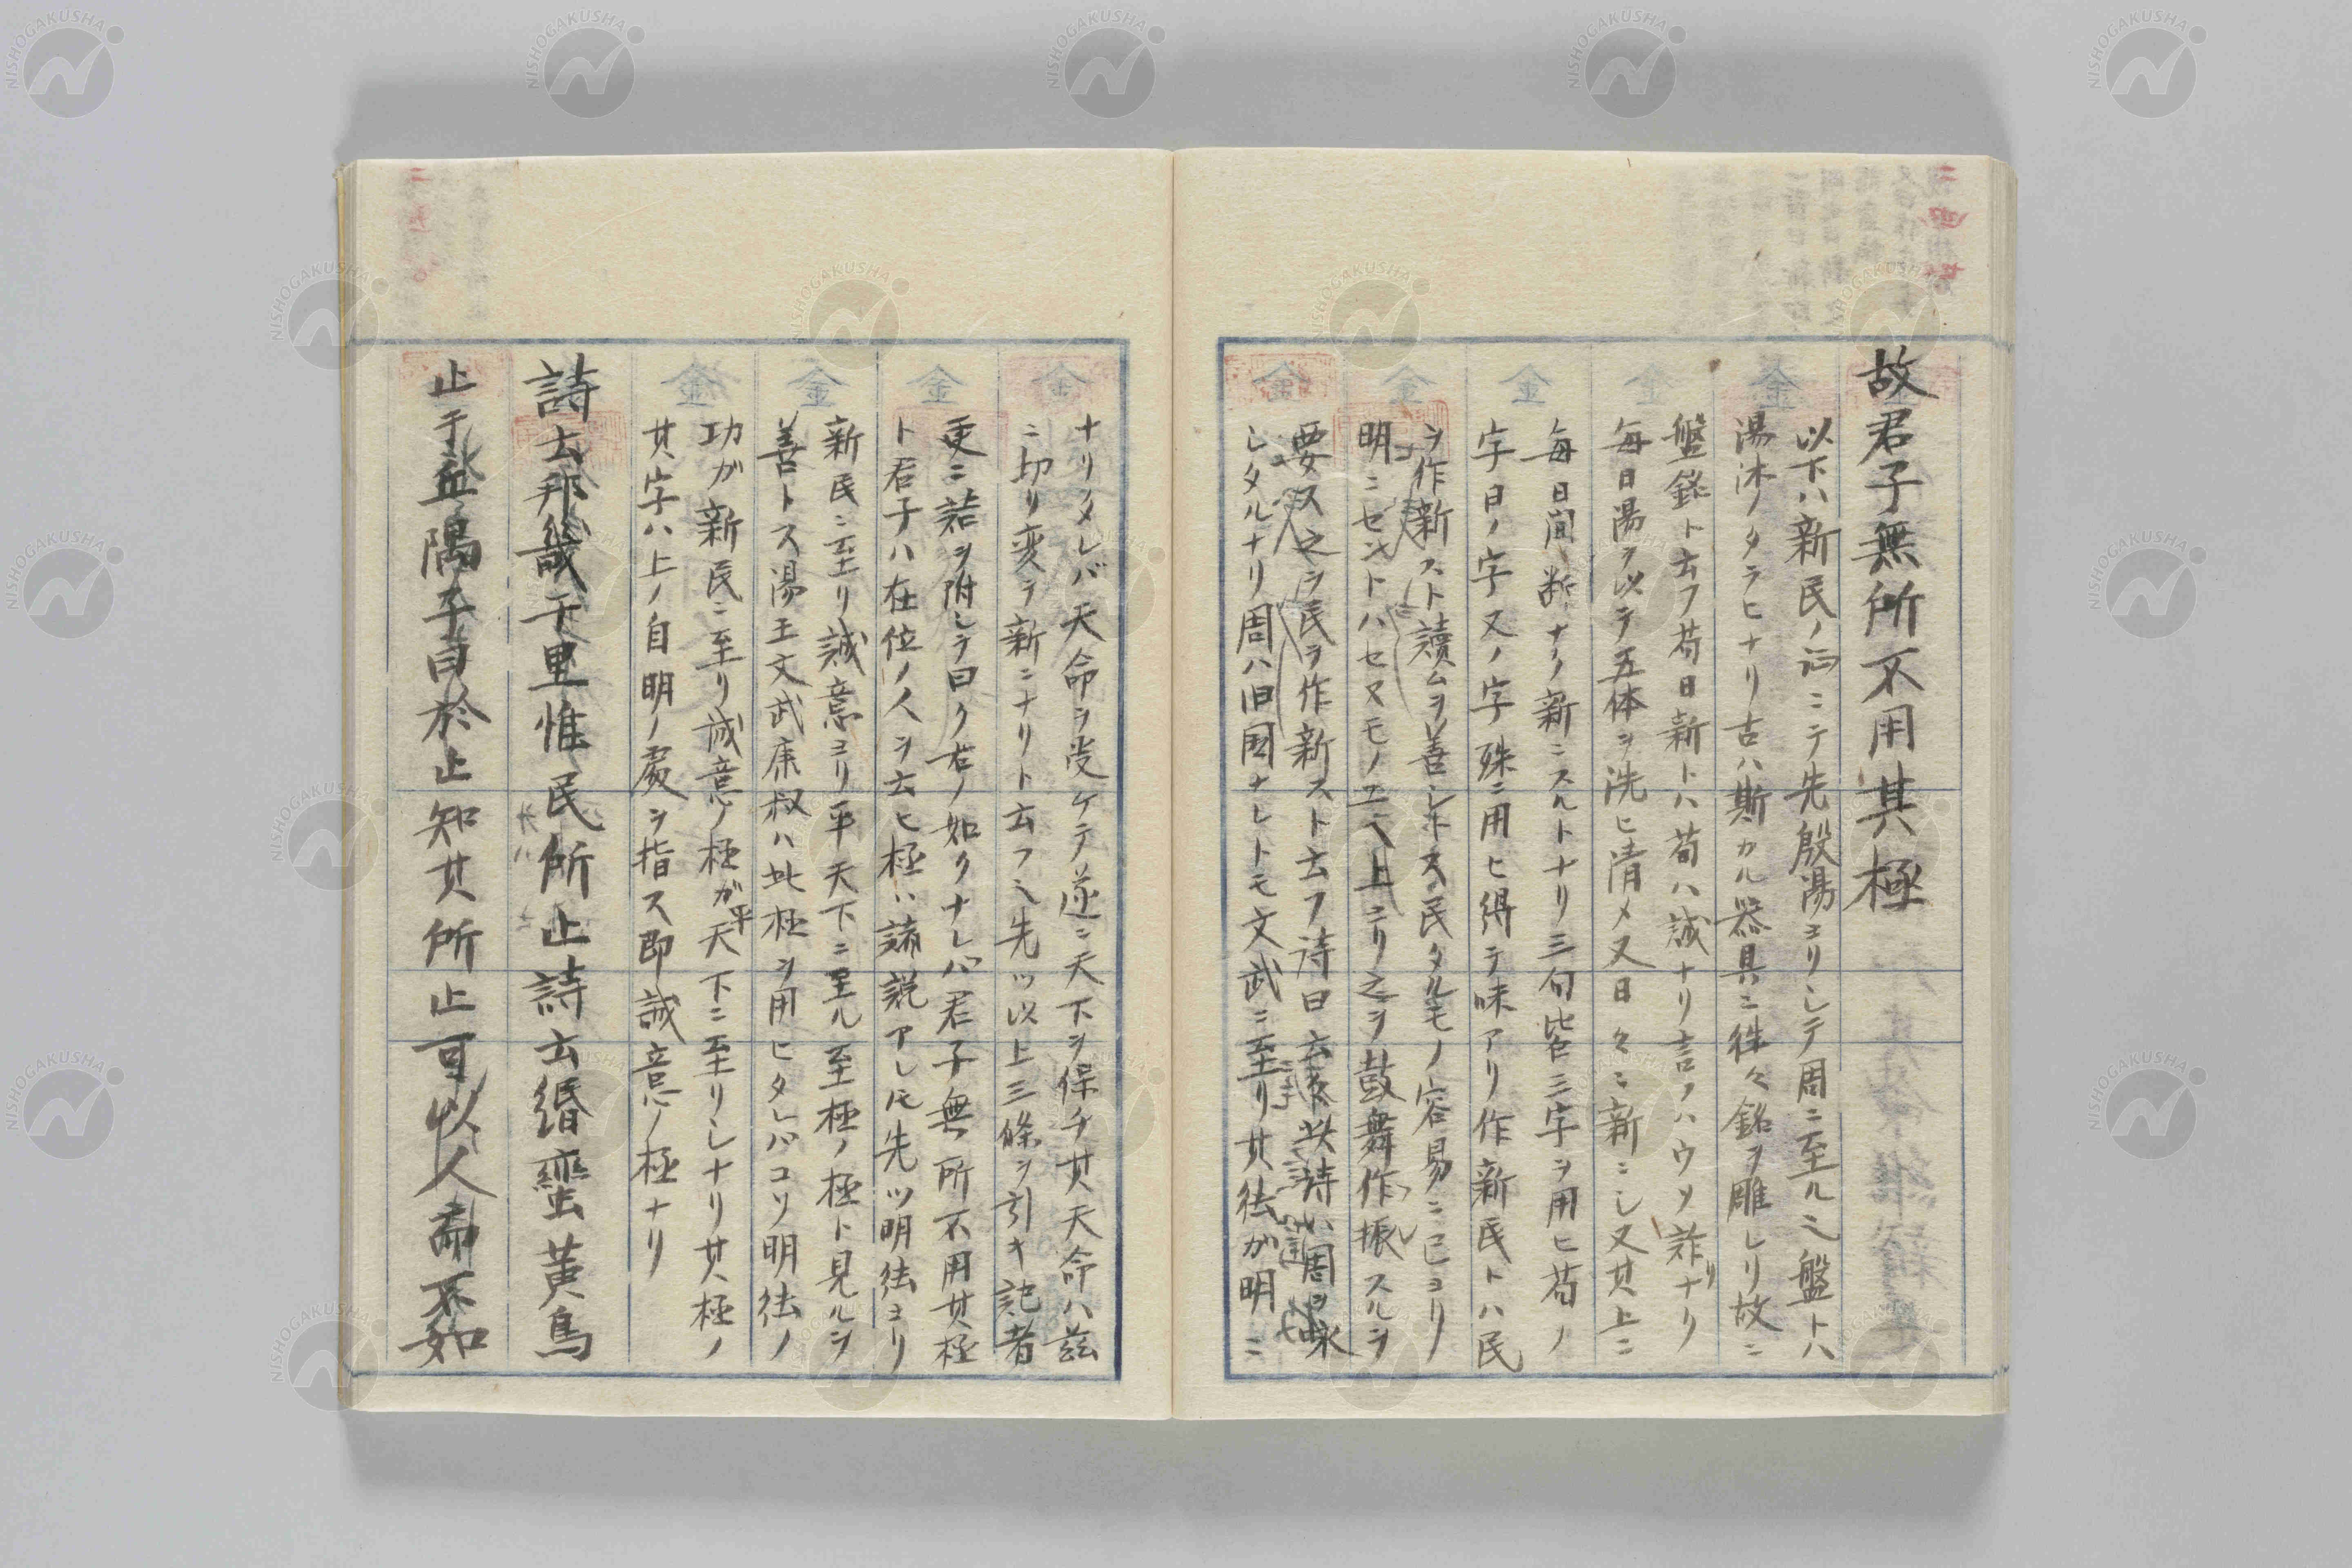 故君子無所不用其極
以下ハ新民ノ詞ニテ先殷湯ヨリシテ周ニ至ル之盤トハ
湯沐ノタラヒナリ古ハ斯カル器具ニ往々銘ヲ雕レリ故ニ
盤銘ト云フ苟日新トハ苟ハ誠ナリ言フハウソ詐リナリ
毎日湯ヲ以テ五体ヲ洗ヒ清メ又日々ニ新ニシ又其上ニ
毎日間断ナク新ニスルトナリ三句皆三字ヲ用ヒ苟ノ
字日ノ字又ノ字殊ニ用ヒ得テ味アリ作新民トハ民
ヲ作新スト讀ムヲ善シトス民タルモノ容易ニ己ヨリ
明ニセントハセヌモノユヘ上ヨリ之ヲ鼓舞作振スルヲ
要ス之ヲ民ヲ作新スト云フ詩曰云々此詩ハ周ヲ咏
シタルナリ周ハ旧国ナレトモ文武ニ至リ其徳が明ニ
ナリタレバ天命ヲ受ケテ遂ニ天下ヲ保チ其天命ハ茲
ニ切リ変テ新ニナリト云フ之先ツ以上三條ヲ引キ記者
更ニ若ヲ附シテ曰ク右ノ如クナレバ君子無所不用其極
ト君子ハ在位ノ人ヲ云ヒ極ハ諸説アレ𪜈先ツ明徳ヨリ
新民ニ至リ誠意ヨリ平天下ニ至ル至極ノ極ト見ルヲ
善トス湯王文武康叔ハ此極ヲ用ヒタレバコソ明徳ノ
功ガ新民ニ至リ誠意ノ極ガ平天下ニ至リシナリ其極ノ
其字ハ上ノ自明ノ處ヲ指ス即誠意ノ極ナリ
詩云邦畿千里惟民所止詩云緡蠻黄鳥
止于丘隅子曰於止知其所止可以人而不如